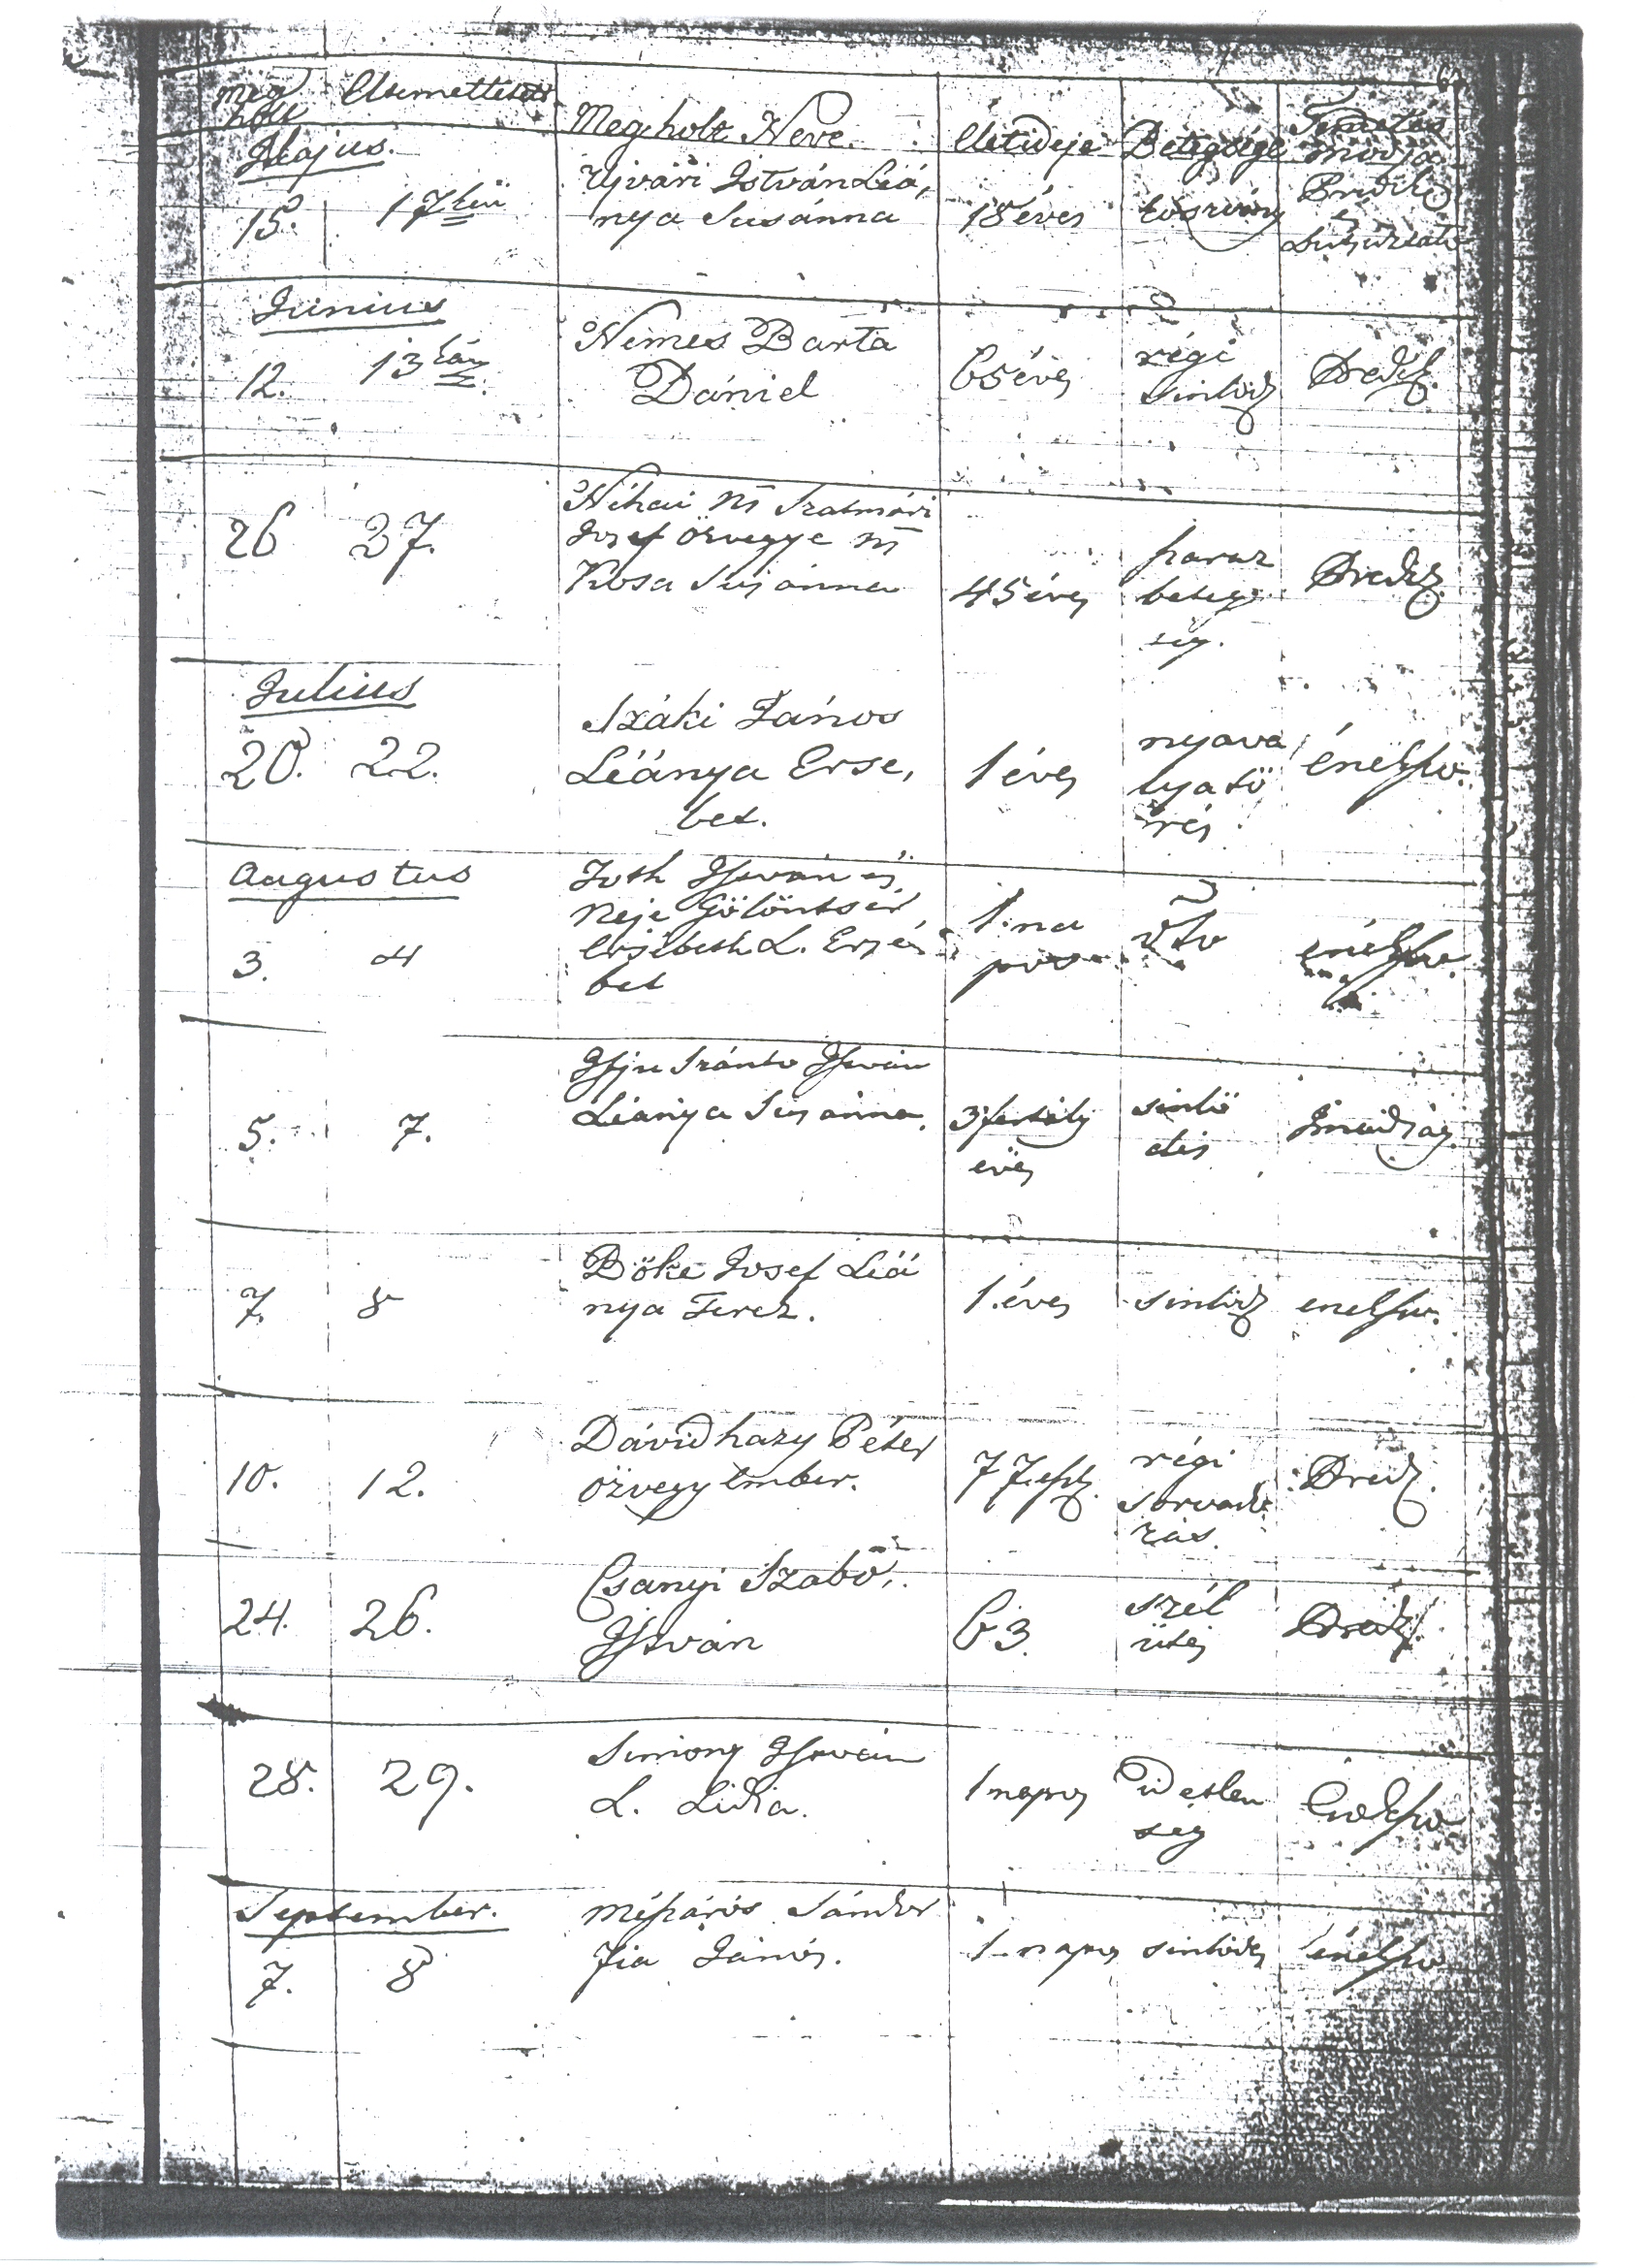 Meg holt Eltemettetett Megholt Neve. Életideje Betegsége Temetés módja
Május.
15. 17kén Ujvári István Leá,
nya Susánna 18 éves Predik
Junius
12. 13kán Nemes Barta
Dániel 65 éves régi
sinlőd Predik.
26 27. Néhai N Szatmári
Josef özvegye N
Kosa Susánna 45 éves haraz
beteg
ség. Predik.
Julius
20. 22. Száki János
Leánya Erse,
bet. 1 éves nyava
lyatö
rés énekszo.
Augustus
3. 4 Toth István és
Neje Gölöntsér
Ersébeth L. Ersé
bet 1. na
pos énekszo.
5. 7. Ifju Szánto István
Leánya Susánna. 3 fertály
éves sinlő
dés Imádság.
7. 8 Böke Josef Leá
nya Terez. 1. éves sinlőd enekszo.
10. 12. Dávidhazy Péter
özvegy Ember. 77 régi
sorvado
zás. Pred.
24. 26. Csanyi Szabó
István 63. szél
ütés Pred.
28. 29. Simony István
L. Lidia. 1 napos Idetlen
ség Énekszo
September.
7. 8 Mészáros Sándor
Fia János. 1. napos sinlődes énekszo